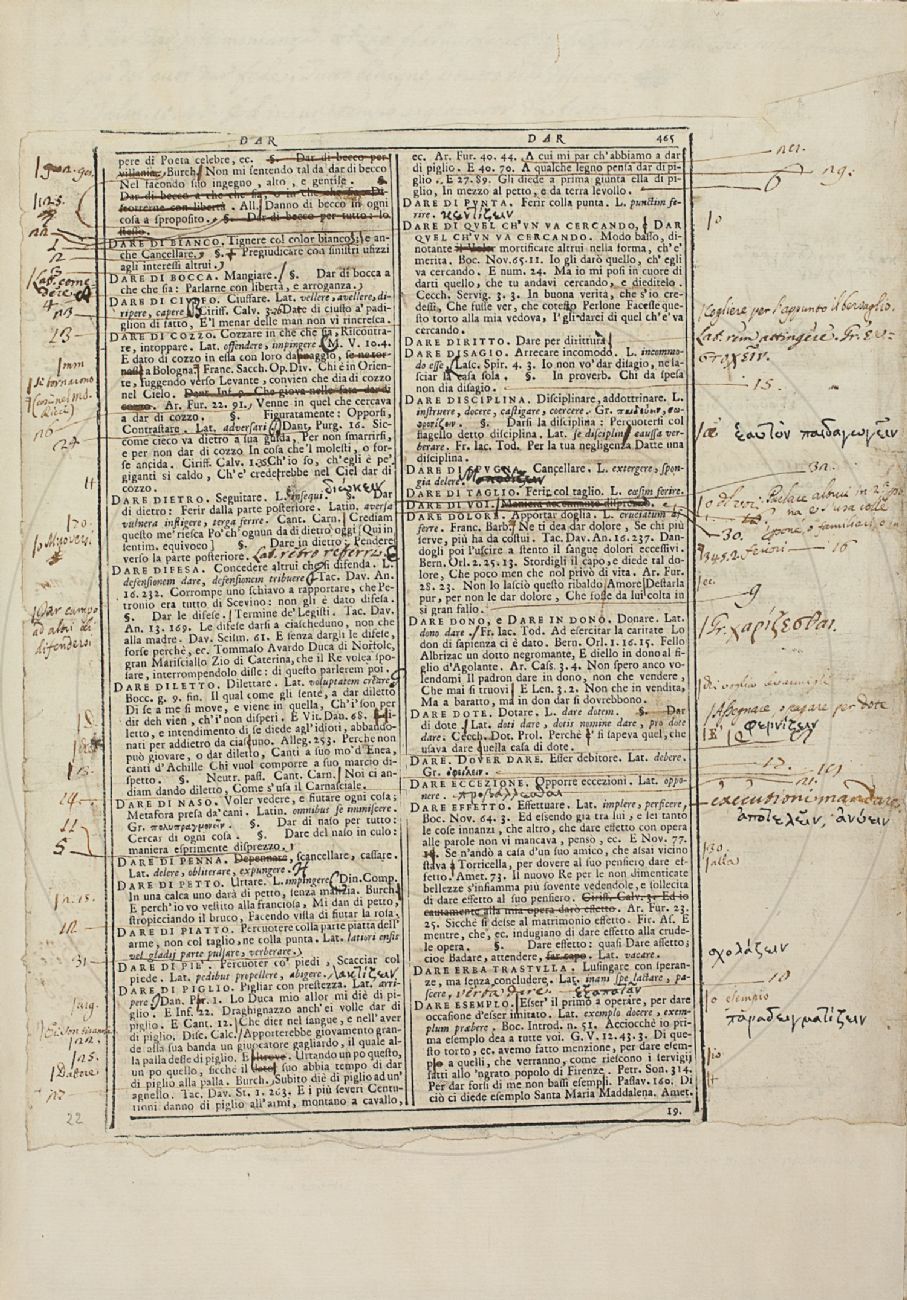 DAR
DAR 465
pere di Poeta celebre, ec. §. Dar di becco per
villania. Burch. Non mi sentendo tal da dar di becco
Nel facondo suo ingegno, alto, e gentile. §.
Dar di becco a che che sia,
scorrerne con libertà. All. Danno di becco in ogni
cosa a sproposito. §. Dar di becco per tutto: lo
stesso.
DARE DI BIANCO. Tignere col color bianco; e an-
che Cancellare. §. Pregiudicare con sinistri ufizzi
agli interessi altrui.
DARE DI BOCCA. Mangiare. §. Dar di bocca a
che che sia: Parlarne con libertà, e arroganza.
DARE DI CIUFFO. Ciuffare. Lat. vellere, avellere, di-
ripere, capere. Ciriff. Calv. Date di ciuffo a' padi-
glion di fatto, E 'l menar delle man non vi rincresca.
DARE DI COZZO. Cozzare in che che sia, Riscontra-
re, intoppare. Lat. offendere, impingere. M. V. 10. 4.
E dato di cozzo in essa con loro dannaggio, se ne tor-
a Bologna. Franc. Sacch. Op. Div. Chi è in Orien-
te, fuggendo verso Levante, convien che dia di cozzo
nel Cielo. Dant. Inf. 9. Che giova nelle fata dar di
cozzo. Ar. Fur. 22. 91. Venne in quel che cercava
a dar di cozzo. §. Figuratamente: Opporsi,
Contrastare. Lat. adversari. Dant. Purg. 16. Sic-
come cieco va dietro a sua guida, Per non smarrirsi,
e per non dar di cozzo In cosa che 'l molesti, o for-
se ancida. Ciriff. Calv. Ch'io so, ch'egli è pe'
giganti sì caldo, Ch'e' crederebbe nel Ciel dar di
cozzo.
διώκειν
DARE DIETRO. Seguitare. L. insequi. §. Dar
di dietro: Ferir dalla parte posteriore. Latin. aversa
vulnera infligere, terga ferire. Cant. Carn. Crediam
questo me' riesca Po' ch'ognun dà di dietro oggi (Qui in
sentim. equivoco) §. Dare in dietro: Pendere
verso la parte posteriore. Lat. retro referri
DARE DIFESA. Concedere altrui che si difenda. L.
defensionem dare, defensionem tribuere. Tac. Dav. An.
16. 232. Corrompe uno schiavo a rapportare, che Pe-
tronio era tutto di Scevino: non gli è dato difesa.
§. Dar le difese. Termine de' Legisti. Tac. Dav.
An. 13. 169. Le difese darsi a ciascheduno, non che
alla madre. Dav. Scism. 61. E senza dargli le difese,
forse perchè, ec. Tommaso Avardo Duca di Norfolc,
gran Mariscialto Zio di Caterina, che il Re volea spo-
sare, interrompendolo disse: di questo parlerem poi.
DARE DILETTO. Dilettare. Lat. voluptatem creare.
Bocc. g. 9. fin. Il qual come gli sente, a dar diletto
Di se a me si move, e viene in quella, Ch'i' son per
dir deh vien, ch'i' non disperi. E Vit. Dan. 68.
letto, e intendimento di se diede agl'idioti, abbando-
nati per addietro da ciascuno. Alleg. 253. Perchè non
può giovare, o dar diletto, Canti a suo mo' d'Enea,
canti d'Achille Chi vuol comporre a suo marcio di-
spetto. §. Neutr. pass. Cant. Carn. Noi ci an-
diam dando diletto, Come s'usa il Carnasciale.
DARE DI NASO. Voler vedere, e fiutare ogni cosa;
Metafora presa da' cani. Latin. omnibus se immiscere.
Gr. πολυπραγμονεῖν. §. Dar di naso per tutto:
Cercar di ogni cosa. §. Dare del naso in culo:
maniera esprimente disprezzo.
DARE DI PENNA. Dipennare, scancellare, cassare.
Lat. delere, obliterare, expungere.
DARE DI PETTO. Urtare. L. impingere. Din. Comp.
In una calca uno darà di petto, senza malizia. Burch.
E perch'io vo vestito alla franciosa, Mi dan di petto,
stropicciando il bruco, Facendo vista di fiutar la rosa.
DARE DI PIATTO. Percuotere colla parte piatta dell'
arme, non col taglio, ne colla punta. Lat. latiori ensis
vel gladii parte pulsare, verberare.
DARE DI PIE'. Percuoter co' piedi, Scacciar col
piede. Lat. pedibus propellere, abigere. λακτίζειν
DARE DI PIGLIO. Pigliar con prestezza. Lat. arri-
pere. Dan. Par. 1. Lo Duca mio allor mi diè di pi-
glio. E Inf. 22. Draghignazzo anch'ei volle dar di
piglio. E Cant. 12. Che dier nel sangue, e nell'aver
di piglio. Disc. Calc. Apporterebbe giovamento gran-
de alla sua banda un giucatore gagliardo, il quale al-
la palla desse di piglio. E Urtando un po questo,
un po quello, sicchè il suo abbia tempo di dar
di piglio alla palla. Burch. Subito diè di piglio ad un'
agnello. Tac. Dav. St. 1. 263. E i più severi Centu-
rioni danno di piglio all'armi, montano a cavallo,
ec. Ar. Fur. 40. 44. A cui mi par ch'abbiamo a dar
di piglio. E 40. 70. A qualche legno pensa dar di pi-
glio. E 27. 89. Gli diede a prima giunta ella di pi-
glio, In mezzo al petto, e da terra levollo.
DARE DI PUNTA. Ferir colla punta. L. punctim fe-
rire. κεντίζειν
DARE DI QVEL CH'VN VA CERCANDO, DAR
QVEL CH'VN VA CERCANDO. Modo basso, di-
notante mortificare altrui nella forma, ch'e'
merita. Boc. Nov. 65. 11. Io gli darò quello, ch'egli
va cercando. E num. 24. Ma io mi posi in cuore di
darti quello, che tu andavi cercando, e dieditelo.
Cecch. Servig. 3. 3. In buona verità, che s'io cre-
dessi, Che fusse ver, che cotesto Perlone Facesse que-
sto torto alla mia vedova, I' gli darei di quel ch'e' va
cercando.
DARE DIRITTO. Dare per dirittura.
DARE DISAGIO. Arrecare incomodo. L. incommo-
do esse. Lasc. Spir. 4. 3. Io non vo' dar disagio, ne la-
sciar la casa sola. §. In proverb. Chi dà spesa
non dia disagio.
DARE DISCIPLINA. Disciplinare, addottrinare. L.
instruere, docere, castigare, coercere. Gr. παιδεύειν, σω-
φρονίζειν. §. Darsi la disciplina: Percuotersi col
flagello detto disciplina. Lat. se disciplinæ caussa ver-
berare. Fr. Iac. Tod. Per la tua negligenza Datte una
disciplina.
DARE DI SPUGNA. Cancellare. L. extergere, spon-
gia delere.
DARE DI TAGLIO. Ferir col taglio. L. cæsim ferire.
DARE DI VOI. Maniera accennante dispregio.
DARE DOLORE. Apportar doglia. L. cruciatum af-
ferre. Franc. Barb. Ne ti dea dar dolore, Se chi più
serve, più ha da costui. Tac. Dav. An. 16. 237. Dan-
dogli poi l'uscire a stento il sangue dolori eccessivi.
Bern. Orl. 2. 25. 13. Stordigli il capo, e diede tal do-
lore, Che poco men che nol privò di vita. Ar. Fur.
28. 23. Non lo lasciò questo ribaldo Amore Destarla
pur, per non le dar dolore, Che fosse da lui colta in
sì gran fallo.
DARE DONO, e DARE IN DONO. Donare. Lat.
dono dare. Fr. Iac. Tod. Ad esercitar la caritate Lo
don di sapienza ci è dato. Bern. Orl. 1. 16. 15. Fello
Albrizac un dotto negromante, E dièllo in dono al fi-
glio d'Agolante. Ar. Cass. 3. 4. Non spero anco vo-
lendomi Il padron dare in dono, non che vendere,
Che mai si truovi E Len. 3. 2. Non che in vendita,
Ma a baratto, ma in don dar si dovrebbono.
DARE DOTE. Dotare. L. dare dotem. §. Dar
di dote. Lat. doti dare, dotis nomine dare, pro dote
dare. Cecch. Dot. Prol. Perchè e' si sapeva quel, che
usava dare quella casa di dote.
DARE. DOVER DARE. Esser debitore. Lat. debere.
Gr. ὀφείλειν.
DARE ECCEZIONE. Opporre eccezioni. Lat. oppo-
nere. προβάλλεσθαι
DARE EFFETTO. Effettuare. Lat. implere, perficere,
Boc. Nov. 64. 3. Ed essendo gia tra lui, e lei tanto
le cose innanzi, che altro, che dare effetto con opera
alle parole non vi mancava, penso, ec. E Nov. 77.
Se n'andò a casa d'un suo amico, che assai vicino
stava a Torricella, per dovere al suo pensiero dare ef-
fetto. Amet. 73. Il nuovo Re per le non dimenticate
bellezze s'infiamma più sovente vedendole, e sollecita
di dare effetto al suo pensiero. Ciriff. Calv. 3. Ed io
cautamente alla mia opera darò effetto. Ar. Fur. 23.
25. Sicchè si desse al matrimonio effetto. Fir. As. E
mentre, che, ec. indugiano di dare effetto alla crude-
le opera. §. Dare effetto: quasi Dare affetto;
cioe Badare, attendere, far capo. Lat. vacare.
DARE ERBA TRASTVLLA. Lusingare con speran-
ze, ma senza concludere. Lat. inani spe lactare, pa-
scere, verba dare.
DARE ESEMPLO. Esser il primo a operare, per dare
occasione d'esser imitato. Lat. exemplo docere, exem-
plum præbere. Boc. Introd. n. 51. Acciocchè io pri-
ma esemplo dea a tutte voi. G. V. 12. 43. 3. Di que-
sto torto, ec. avemo fatto menzione, per dare esem-
plo a quelli, che verranno, come riescono i servigij
fatti allo 'ngrato popolo di Firenze. Petr. Son. 314.
Per dar forsi di me non bassi esempli. Passav. 160. Di
ciò ci diede esemplo Santa Maria Maddalena. Amet.
19.
n25.
12
4
23
n6
24
Dar campo
ad altri di
difendersi
14
11
5
n.18.
12
31
n25.
n7
22
ng.
6
Cogliere per l'appunto il bersaglio.
Lat. rem attingere. Gr. εὐ-
στοχεῖν.
15.
ἑαυτὸν παιδαγωγεῖν
30.
16
9
Gr. χαρίζεσθαι.
Assegnare, o pagare per dote
φερνίζειν
17.
executioni mandare,
ἀποτελεῖν, ἀνύειν
σχολάζειν
10
esempio
παραδειγματίζειν